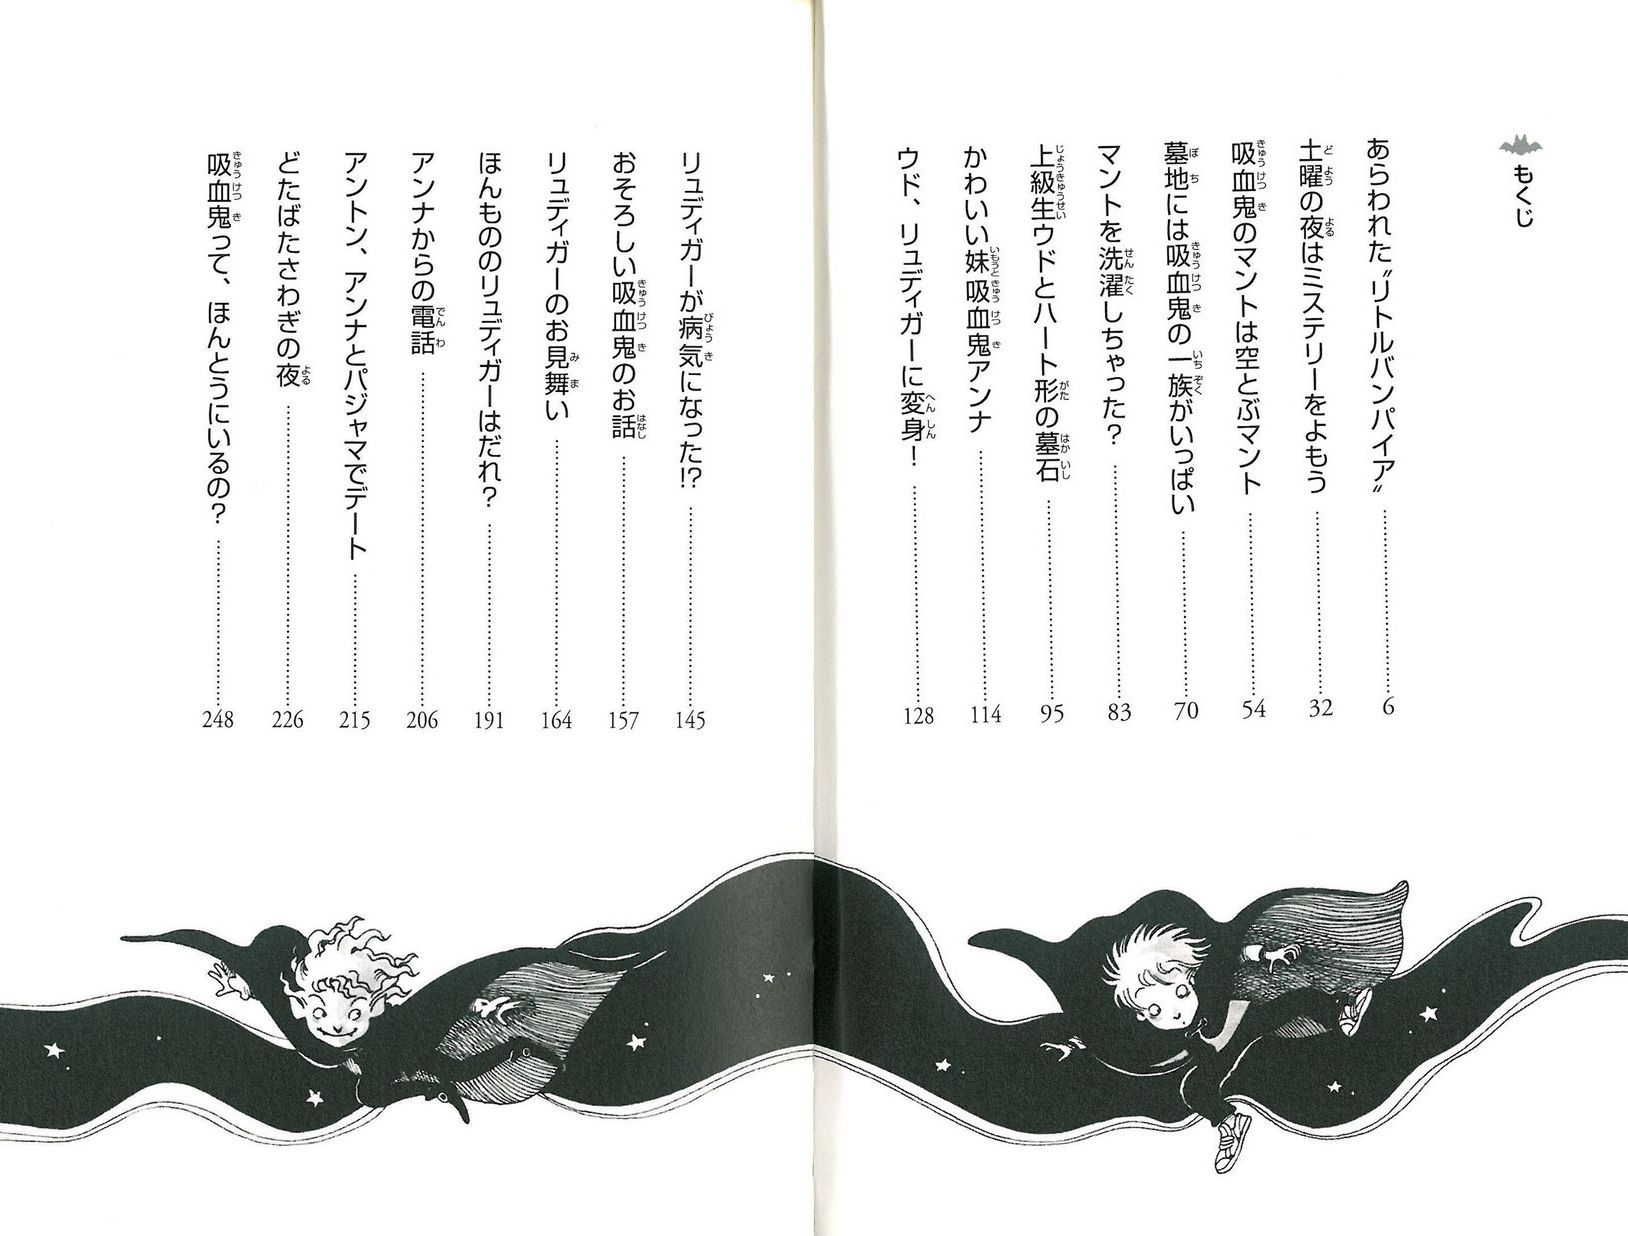 もくじ
あらわれた〝リトルバンパイア〟……6
土曜の夜はミステリーをよもう……32
吸血鬼のマントは空とぶマント……54
墓地には吸血鬼の一族がいっぱい……70
マントを洗濯しちゃった？……83
上級生ウドとハート形の墓石……95
かわいい妹吸血鬼アンナ……114
ウド、リュディガーに変身！……128
リュディガーが病気になった!?……145
おそろしい吸血鬼のお話……157
リュディガーのお見舞い……164
ほんもののリュディガーはだれ？……191
アンナからの電話……206
アントン、アンナとパジャマでデート……215
どたばたさわぎの夜……226
吸血鬼って、ほんとうにいるの？……248